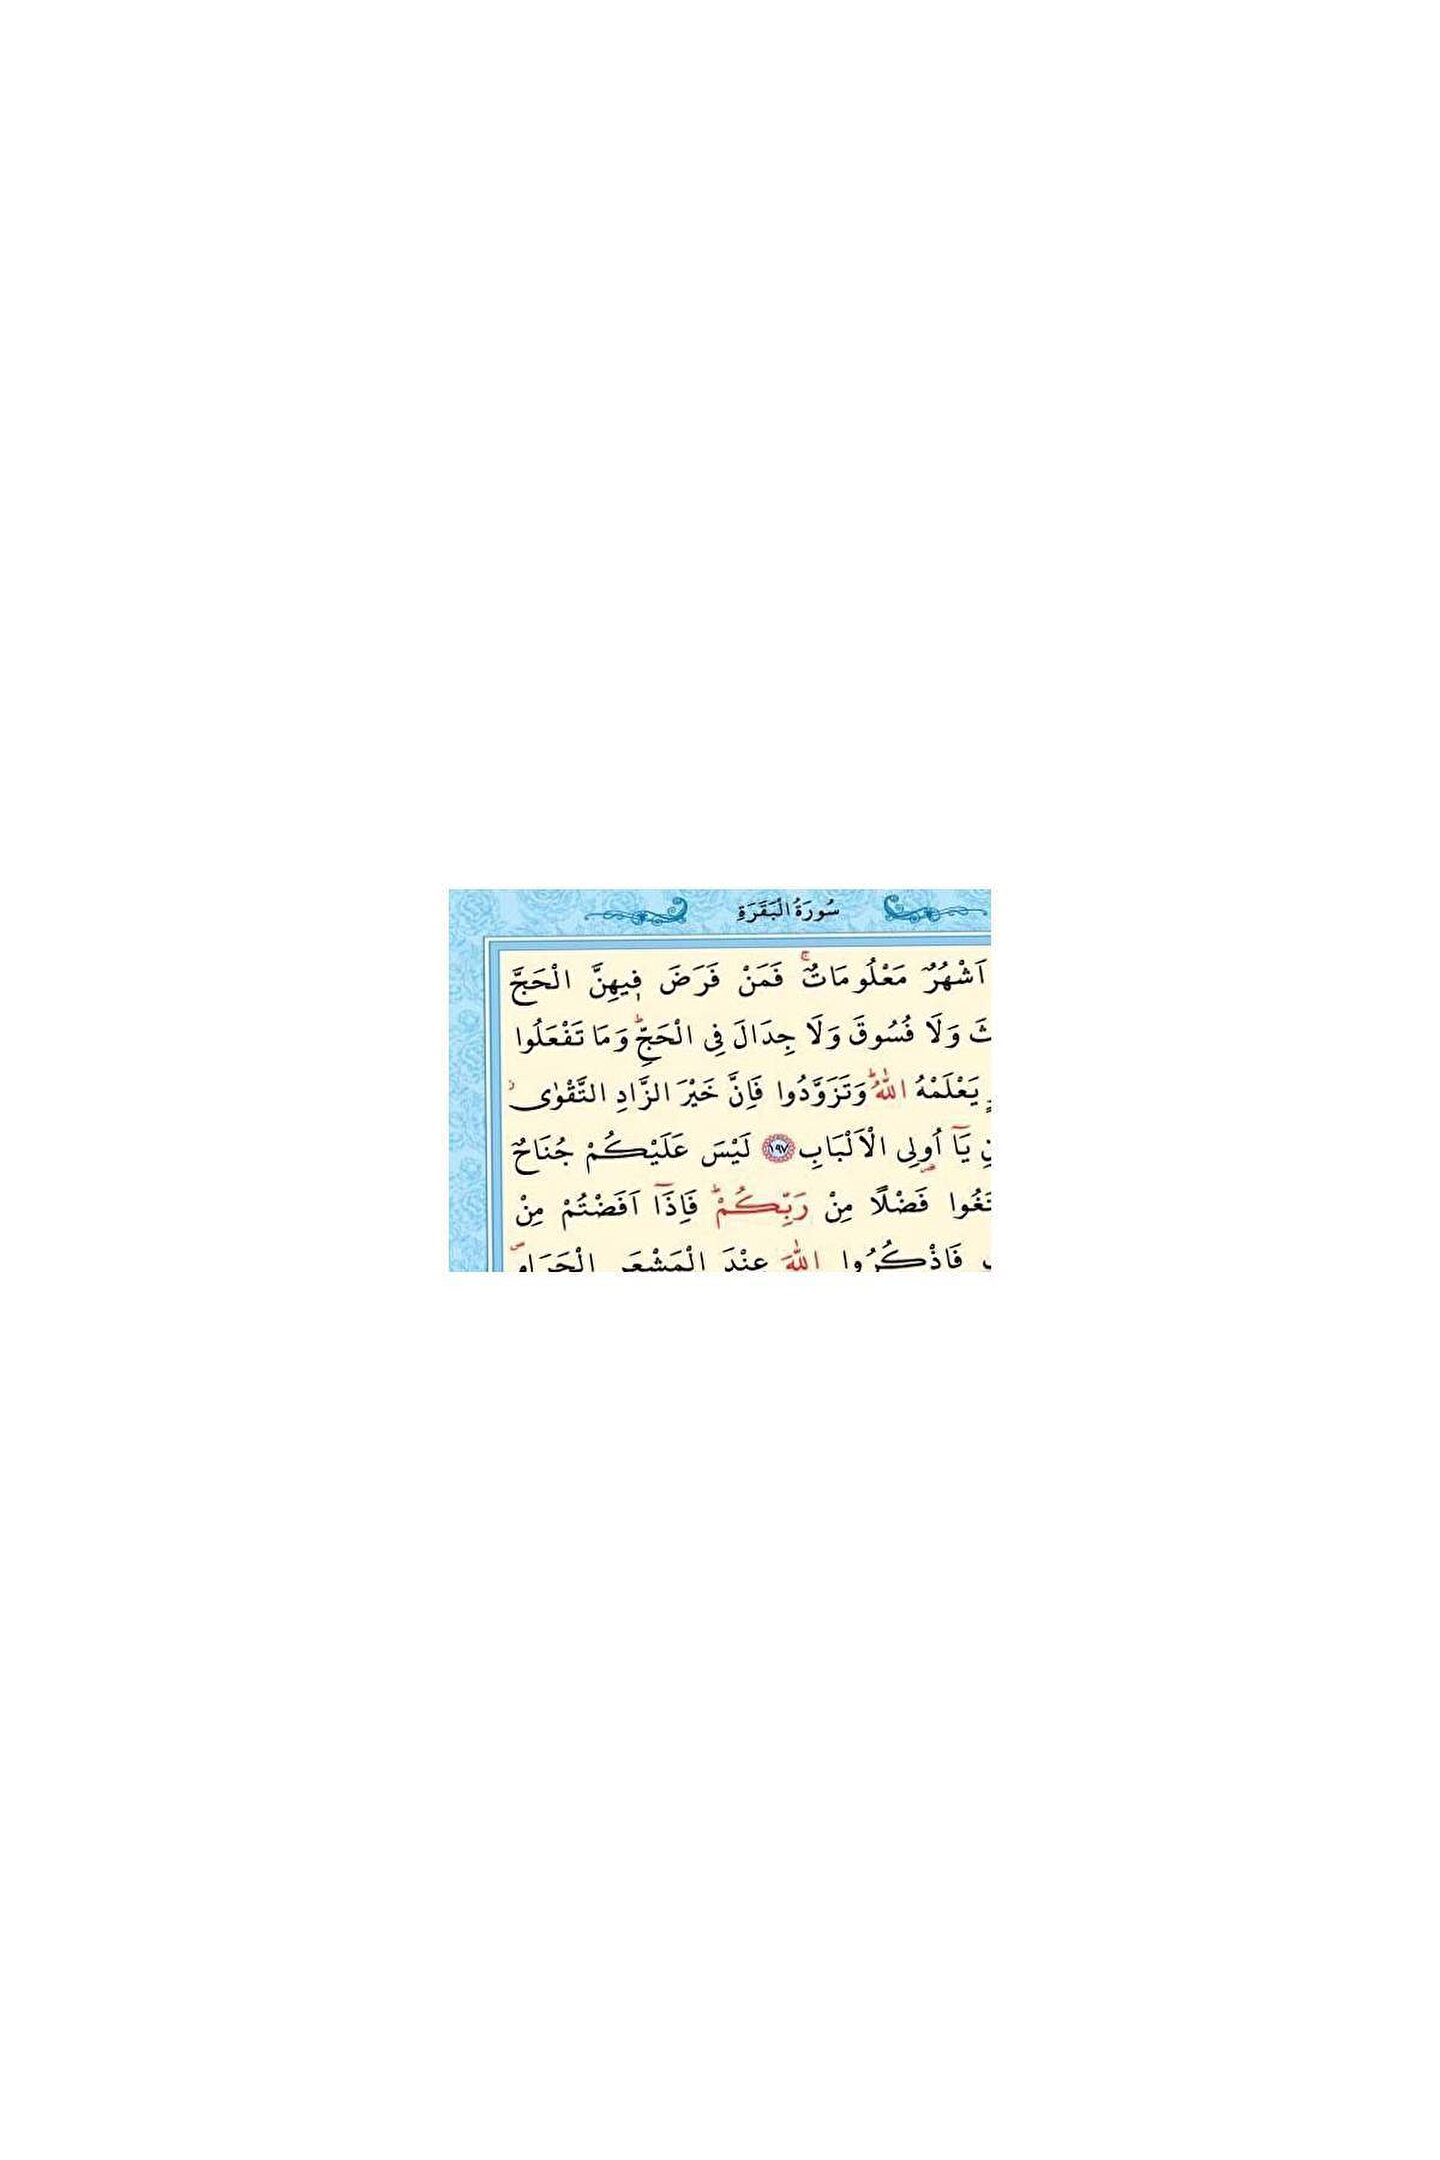 سُورَةُ الْبَقَرَةِ
اَشْهُرٌ مَعْلُومَاتٌۚ فَمَنْ فَرَضَ فٖيهِنَّ الْحَجَّ
وَلَا فُسُوقَ وَلَا جِدَالَ فِى الْحَجِّؕ وَمَا تَفْعَلُوا
يَعْلَمْهُ اللّٰهُؕ وَتَزَوَّدُوا فَاِنَّ خَيْرَ الزَّادِ التَّقْوٰىۘ
يَٓا اُو۬لِى الْاَلْبَابِ ﴿١٩٧﴾ لَيْسَ عَلَيْكُمْ جُنَاحٌ
فَضْلًا مِنْ رَبِّكُمْؕ فَاِذَٓا اَفَضْتُمْ مِنْ
فَاذْكُرُوا اللّٰهَ عِنْدَ الْمَشْعَرِ الْحَرَامِۖ